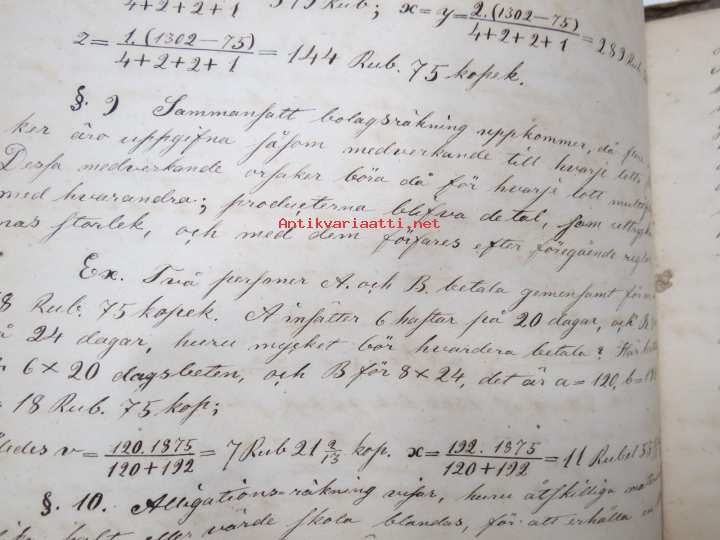 4+2+2+1 Rub; x = y = 2. (1302 – 75)
4+2+2+1 = 289 Rub.
z = 1. (1302 – 75)
4+2+2+1 = 144 Rub. 75 kopek.
§. 9 Sammansatt bolagsräkning uppkommer, då
ker äro uppgifna såsom medverkande till hvarje
Dessa medverkande orsaker böra då för hvarje lott
med hvarandra; producterna blifva de tal, som
nas storlek, och med dem förfares efter föregående
Antikvariaatti.net
Ex. Två personer A. och B. betala gemensamt för
8 Rub. 75 kopek. A insätter 6 hästar på 20 dagar, och B
24 dagar, huru mycket bör hvardera betala? Här
6 × 20 dagsbeten, och B för 8 × 24, det är a = 120, b =
18 Rub. 75 kop;
v = 120. 1875
120 + 192 = 7 Rub 21 2/13 kop. x = 192. 1875
120 + 192 = 11 Rubel
§. 10. Alligations-räkning visar, huru åtskilliga
halt eller värde skola blandas, för att erhålla